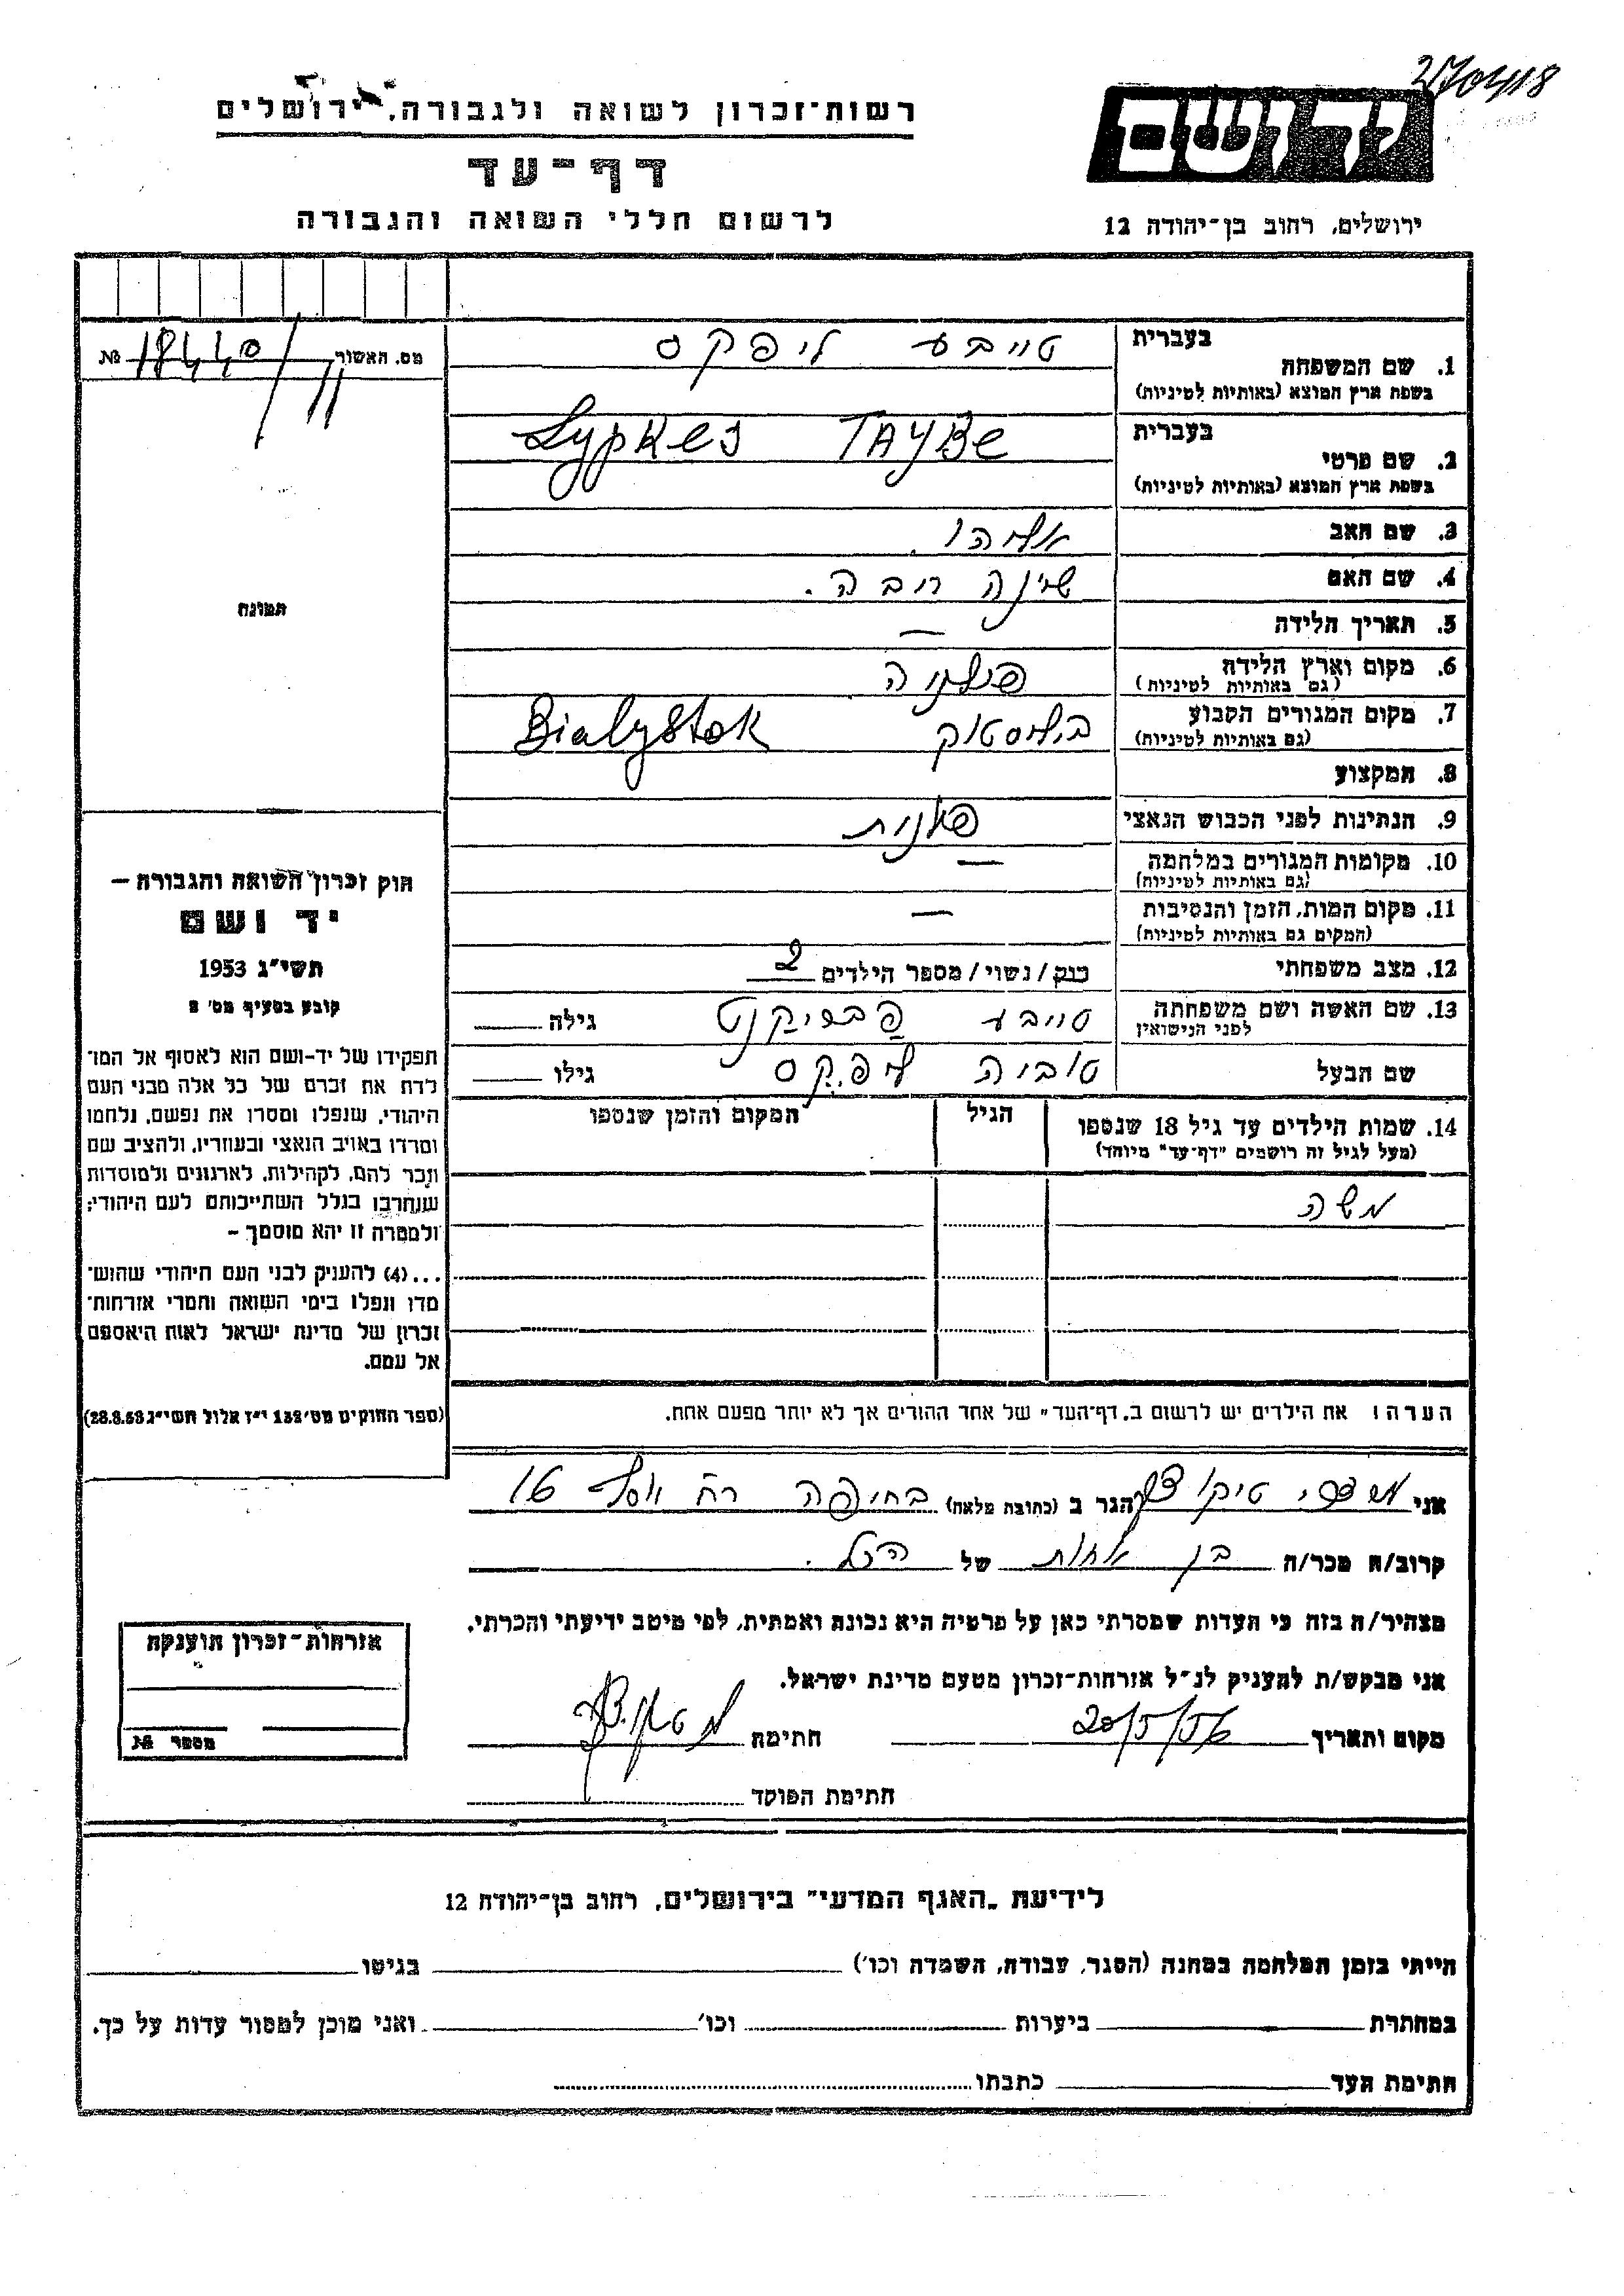 270418
רשות-זכרון לשואה ולגבורה, ירושלים
דף-עד
לרשום חללי השואה והגבורה
ידושם
ירושלים, רחוב בן-יהודה 12
מס. האשור 18440 №
בעברית טייבע ליפקס
1. שם המשפחה
בשפת ארץ המוצא (באותיות לטיניות)
בעברית Lypkes TAYBe
2. שם פרטי
בשפת ארץ המוצא (באותיות לטיניות)
3. שם האב אליהו
4. שם האם שיינה
5. תאריך הלידה —
6. מקום וארץ הלידה פולניה
(גם באותיות לטיניות)
7. מקום המגורים הקבוע ביליסטוק Bialystok
(גם באותיות לטיניות)
8. המקצוע
9. הנתינות לפני הכבוש הנאצי פולנית
10. מקומות המגורים במלחמה —
(גם באותיות לטיניות)
11. מקום המות, הזמן והנסיבות —
(המקום גם באותיות לטיניות)
12. מצב משפחתי רוק/נשוי/מספר הילדים 2
13. שם האשה ושם משפחתה טייבע פבריקנט גילה
לפני הנישואין
שם הבעל טוביה ליפקס גילו
14. שמות הילדים עד גיל 18 שנספו הגיל המקום והזמן שנספו
(מעל לגיל זה רושמים "דף-עד" מיוחד)
משה
הערה: את הילדים יש לרשום ב"דף-העד" של אחד ההורים אך לא יותר מפעם אחת.
תמונה
חוק זכרון השואה והגבורה –
יד ושם
תשי"ג 1953
קובע בסעיף מס' 2
תפקידו של יד-ושם הוא לאסוף אל המו־
לדת את זכרם של כל אלה מבני העם
היהודי, שנפלו ומסרו את נפשם, נלחמו
ומרדו באויב הנאצי ובעוזריו, ולהציב שם
וזכר להם, לקהילות, לארגונים ולמוסדות
שנחרבו בגלל השתייכותם לעם היהודי;
ולמטרה זו יהא מוסמך –
...(4) להעניק לבני העם היהודי שהוש־
מדו ונפלו בימי השואה והמרי אזרחות־
זכרון של מדינת ישראל לאות היאספם
אל עמם.
(ספר החוקים מס' 132 י"ז אלול תשי"ג 28.8.53)
אני הגר ב (כתובת מלאה) בחיפה רח' 16
קרוב/ה מכר/ה בן אחות של הנ"ל.
מצהיר/ה בזה כי העדות שמסרתי כאן על פרטיה היא נכונה ואמתית, לפי מיטב ידיעתי והכרתי.
אני מבקש/ת להעניק לנ"ל אזרחות-זכרון מטעם מדינת ישראל.
מקום ותאריך 20/5/56 חתימה
חתימת הפוקד
אזרחות-זכרון הוענקה
מספר №
לידיעת "האגף המדעי" בירושלים, רחוב בן-יהודה 12
הייתי בזמן המלחמה במחנה (הסגר, עבודה, השמדה וכו') בגיטו
במחתרת ביערות וכו' ואני מוכן למסור עדות על כך.
חתימת העד כתבתו